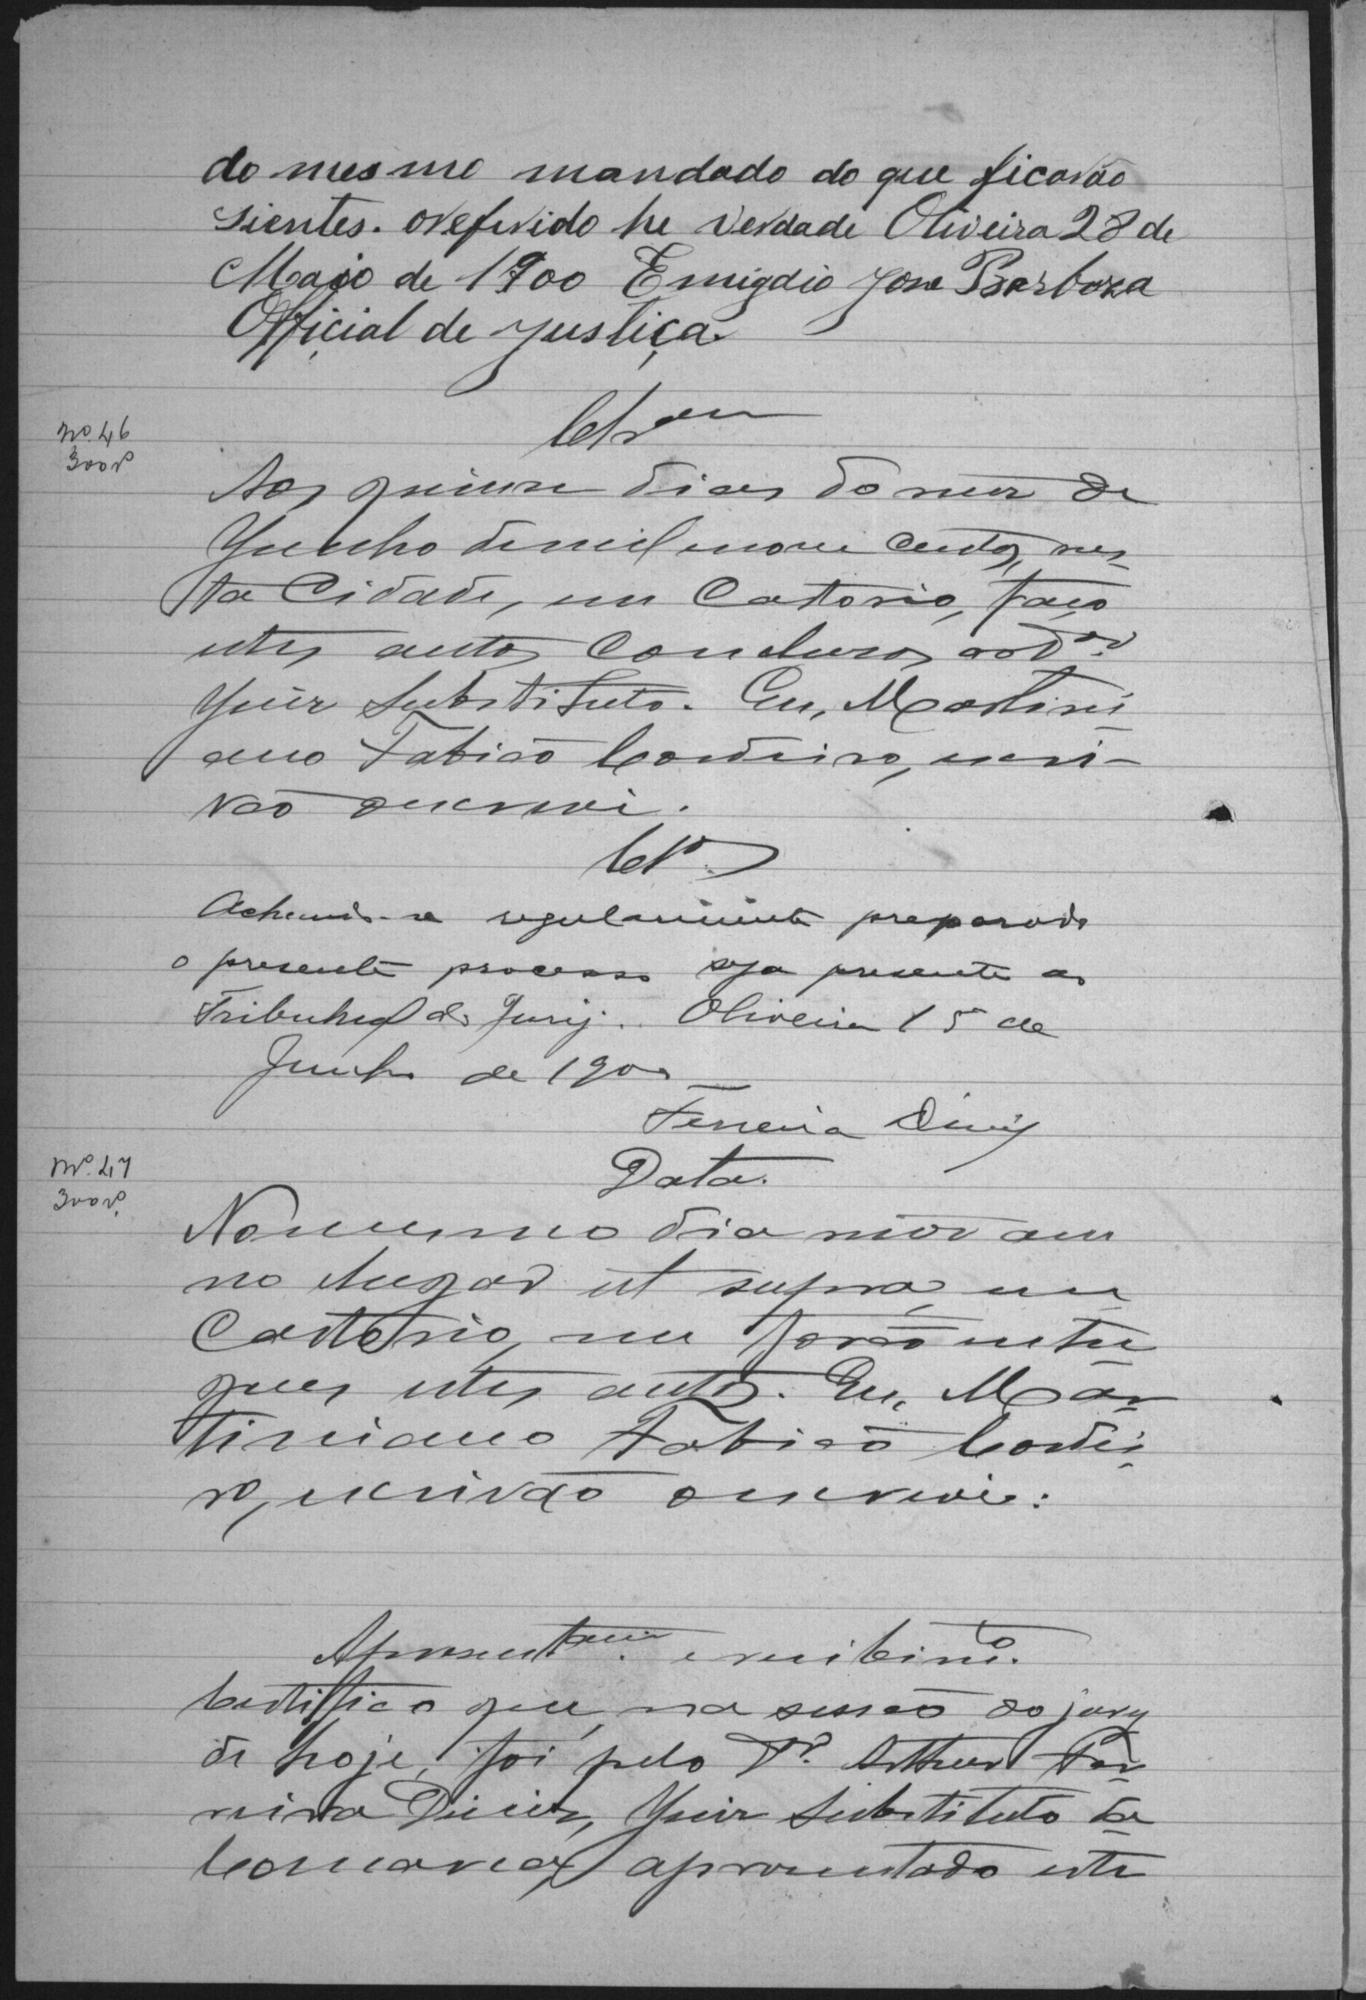 do mesmo mandado do que ficarão
sientes. o referido he verdade Oliveira 28 de
Maio de 1900 Emigdio Jose Barboza
Official de Justiça.
Clsam
No. 46
300rs
Aos quinze dias do mez de
Junho de mil enove centos, nes-
ta Cidade, em Cartorio, faço
estes autos conclusos ao Dor.
Juiz Substituto. Eu, Martini-
ano Fabião Cordeiro, escri-
vão o escrevi.
Cls.
Achando-se regularmente preparado
o presente processo seja presente ao
Tribunal do Jury. Oliveira 15 de
Junho de 1900
Ferreira Diniz
Data.
No. 47
300rs.
No mesmo dia mez an
no lugar ut supra, em
Cartorio, me forão entre
gues estes autos. Eu, Mar-
tiniano Fabião Cordei-
ro, escrivão o escrevi:
Apresentam. e recibimto.
Certifico que, na sessão do jury
de hoje, foi pelo Dr. Arthur Fer-
reira Diniz, Juiz Substituto da
Comarca, apresentado este